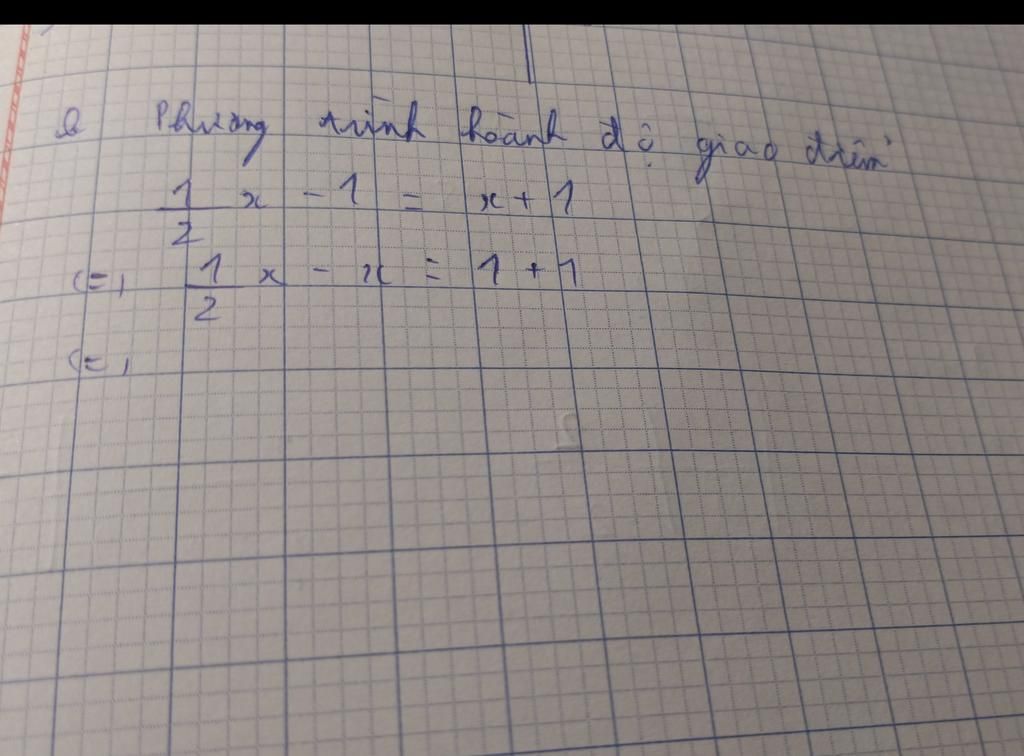 b Phương trình hoành độ giao điểm
1/2 x - 1 = x + 1
<=> 1/2 x - x = 1 + 1
<=>